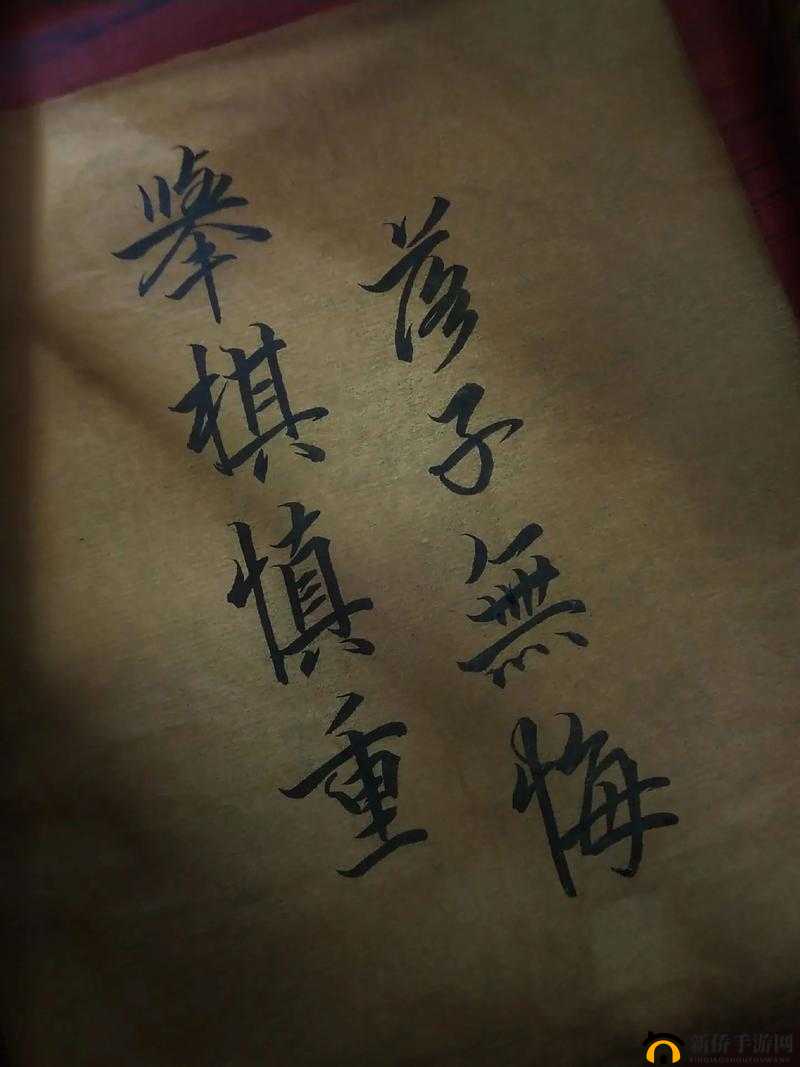 舉棋慎重
落子無悔
新侨手游网
XINQIAOSHOUYOUWANG